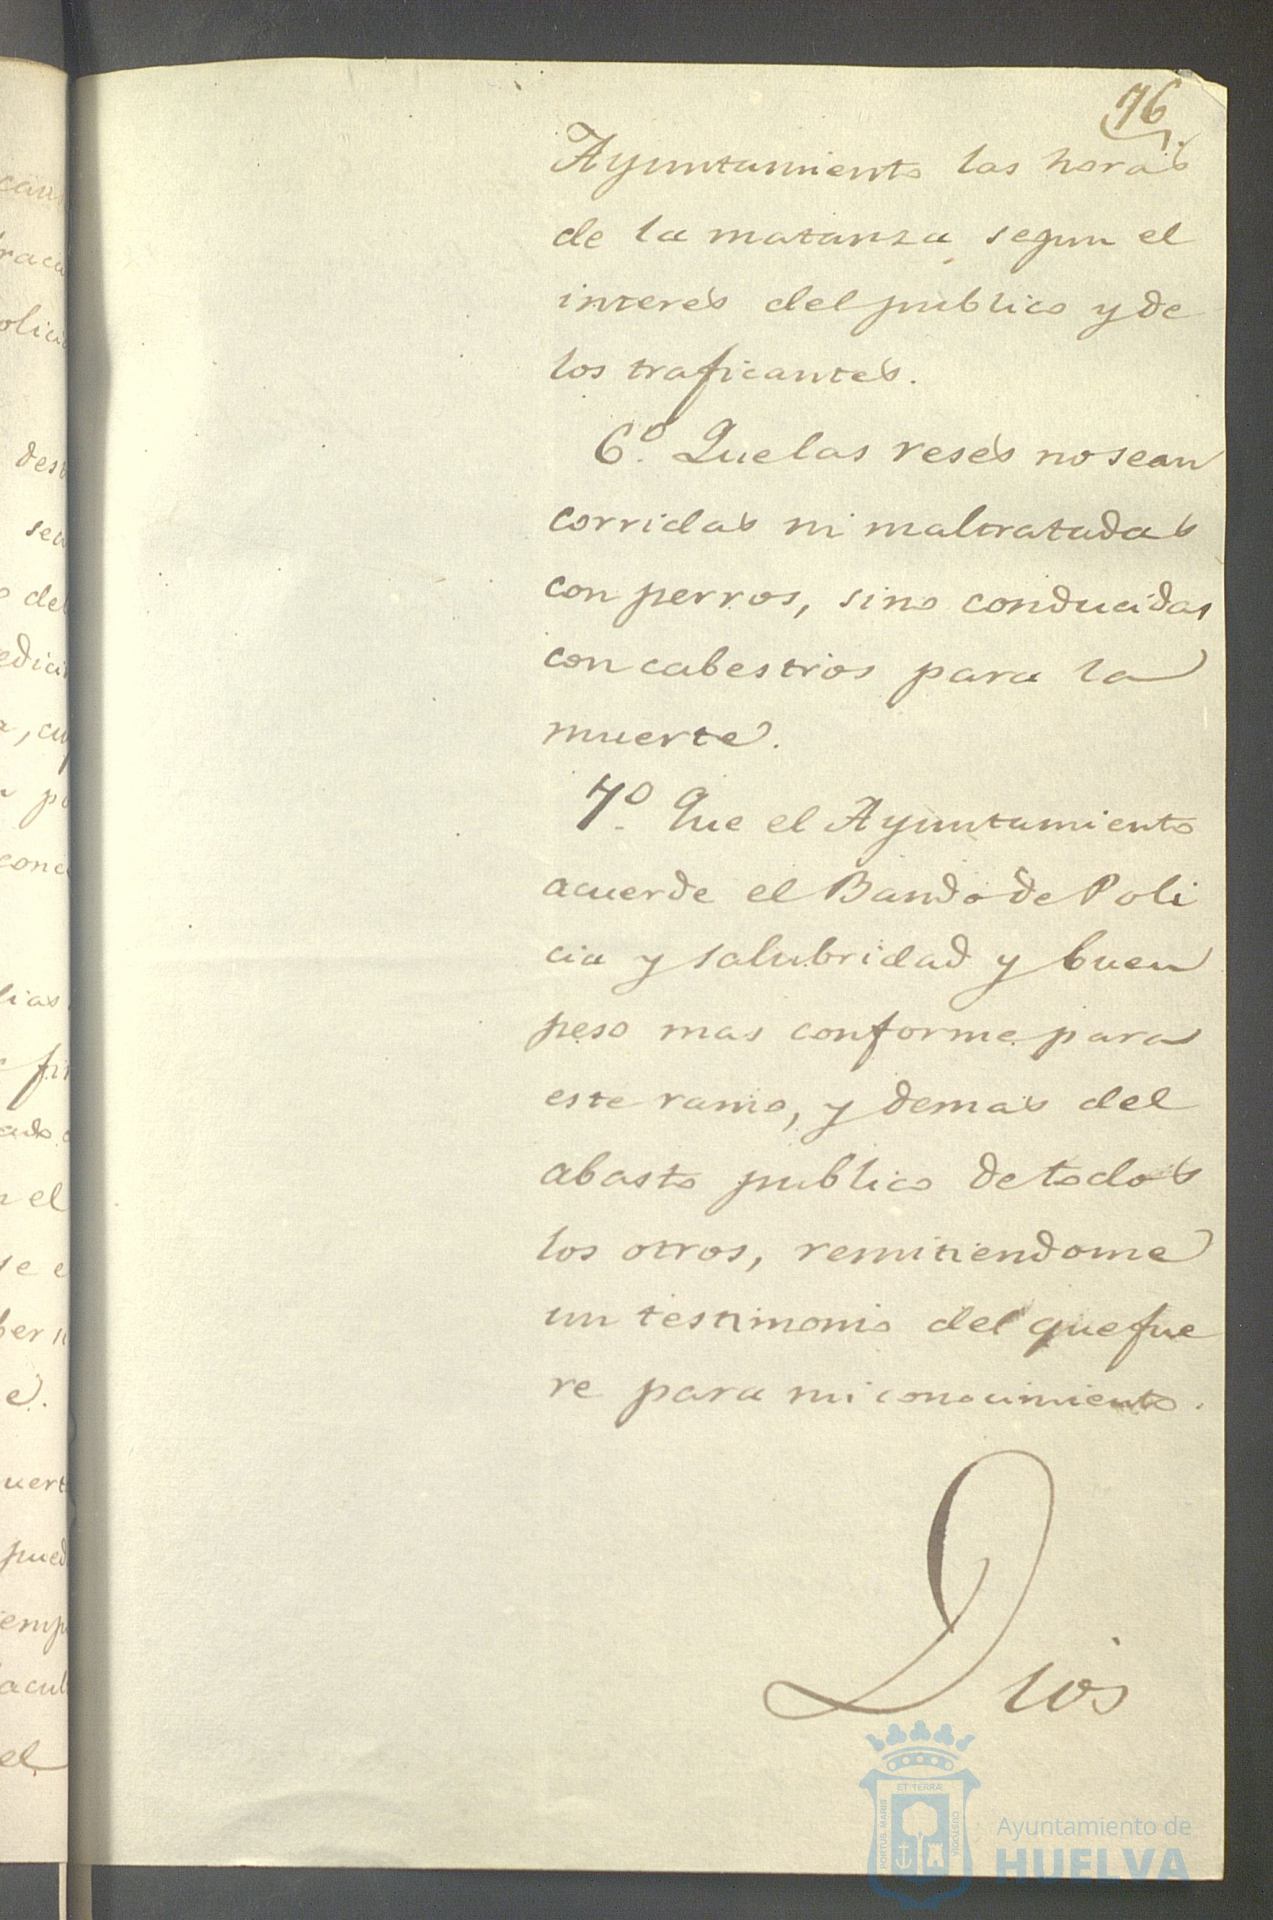 76
Ayuntamiento las horas
de la matanza segun el
interes del publico y de
los traficantes.
6.º Que las reses no sean
corridas ni maltratadas
con perros, sino conducidas
con cabestros para la
muerte.
7.º Que el Ayuntamiento
acuerde el Bando de Poli
cia y salubridad y buen
peso mas conforme para
este ramo, y demas del
abasto publico de todos
los otros, remitiendome
un testimonio del que fue
re para mi conocimiento.
Dios
ET TERRÆ
PORTUS MARIS
CUSTODIA
Ayuntamiento de
HUELVA